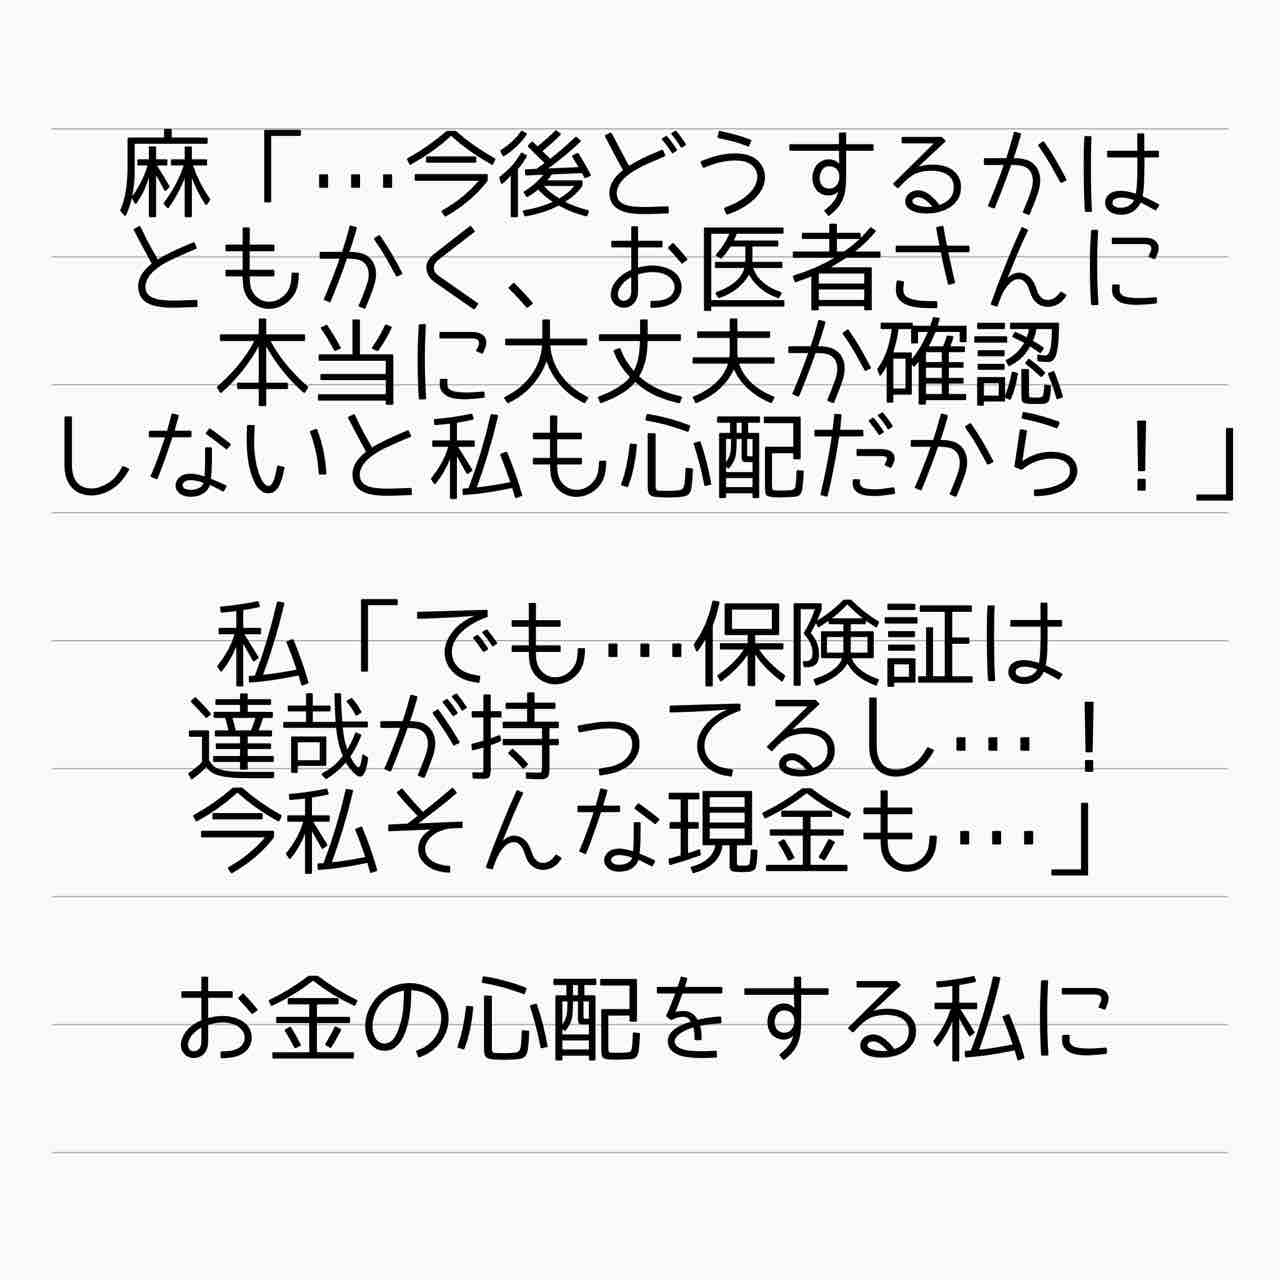 麻「…今後どうするかは
ともかく、お医者さんに
本当に大丈夫か確認
しないと私も心配だから！」
私「でも…保険証は
達哉が持ってるし…！
今私そんな現金も…」
お金の心配をする私に